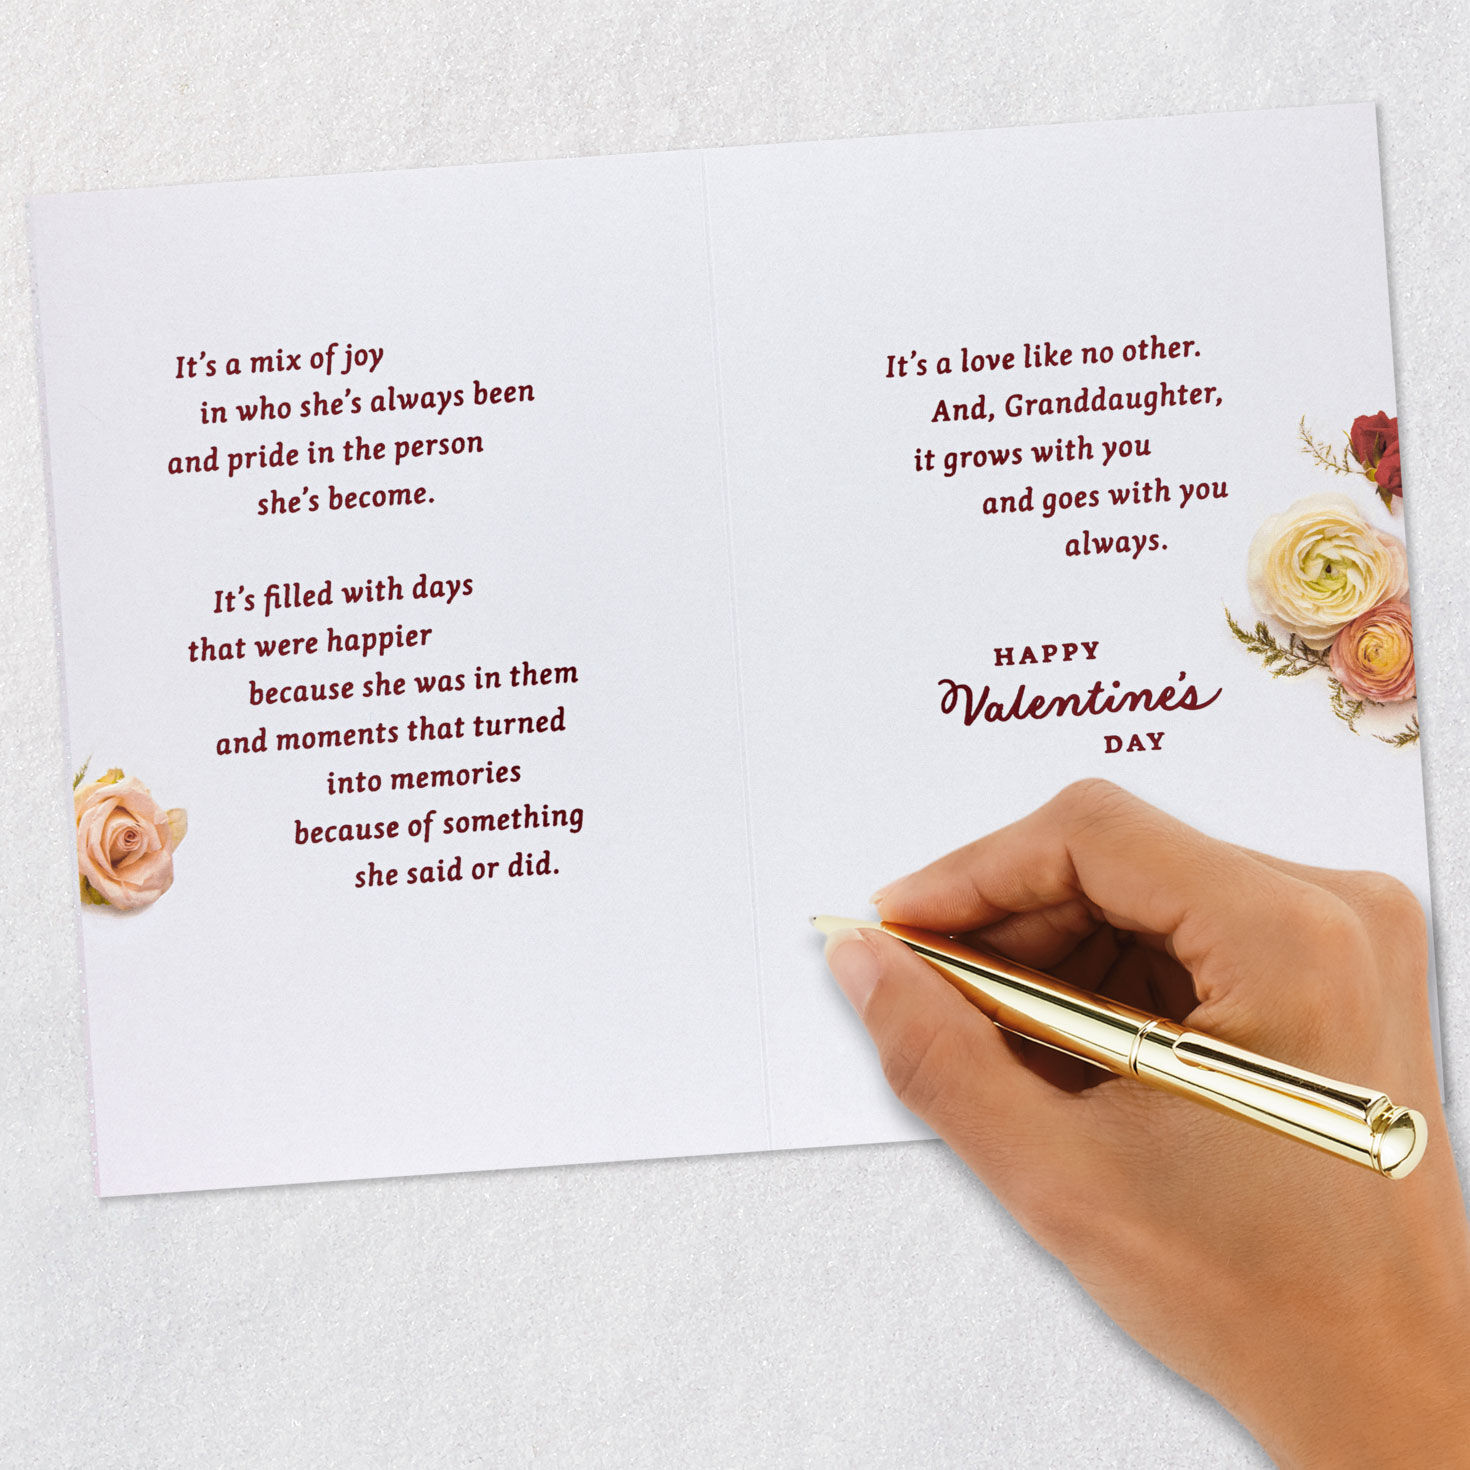 It's a mix of joy
in who she's always been
and pride in the person
she's become.
It's filled with days
that were happier
because she was in them
and moments that turned
into memories
because of something
she said or did.
It's a love like no other.
And, Granddaughter,
it grows with you
and goes with you
always.
HAPPY
Valentine's
DAY